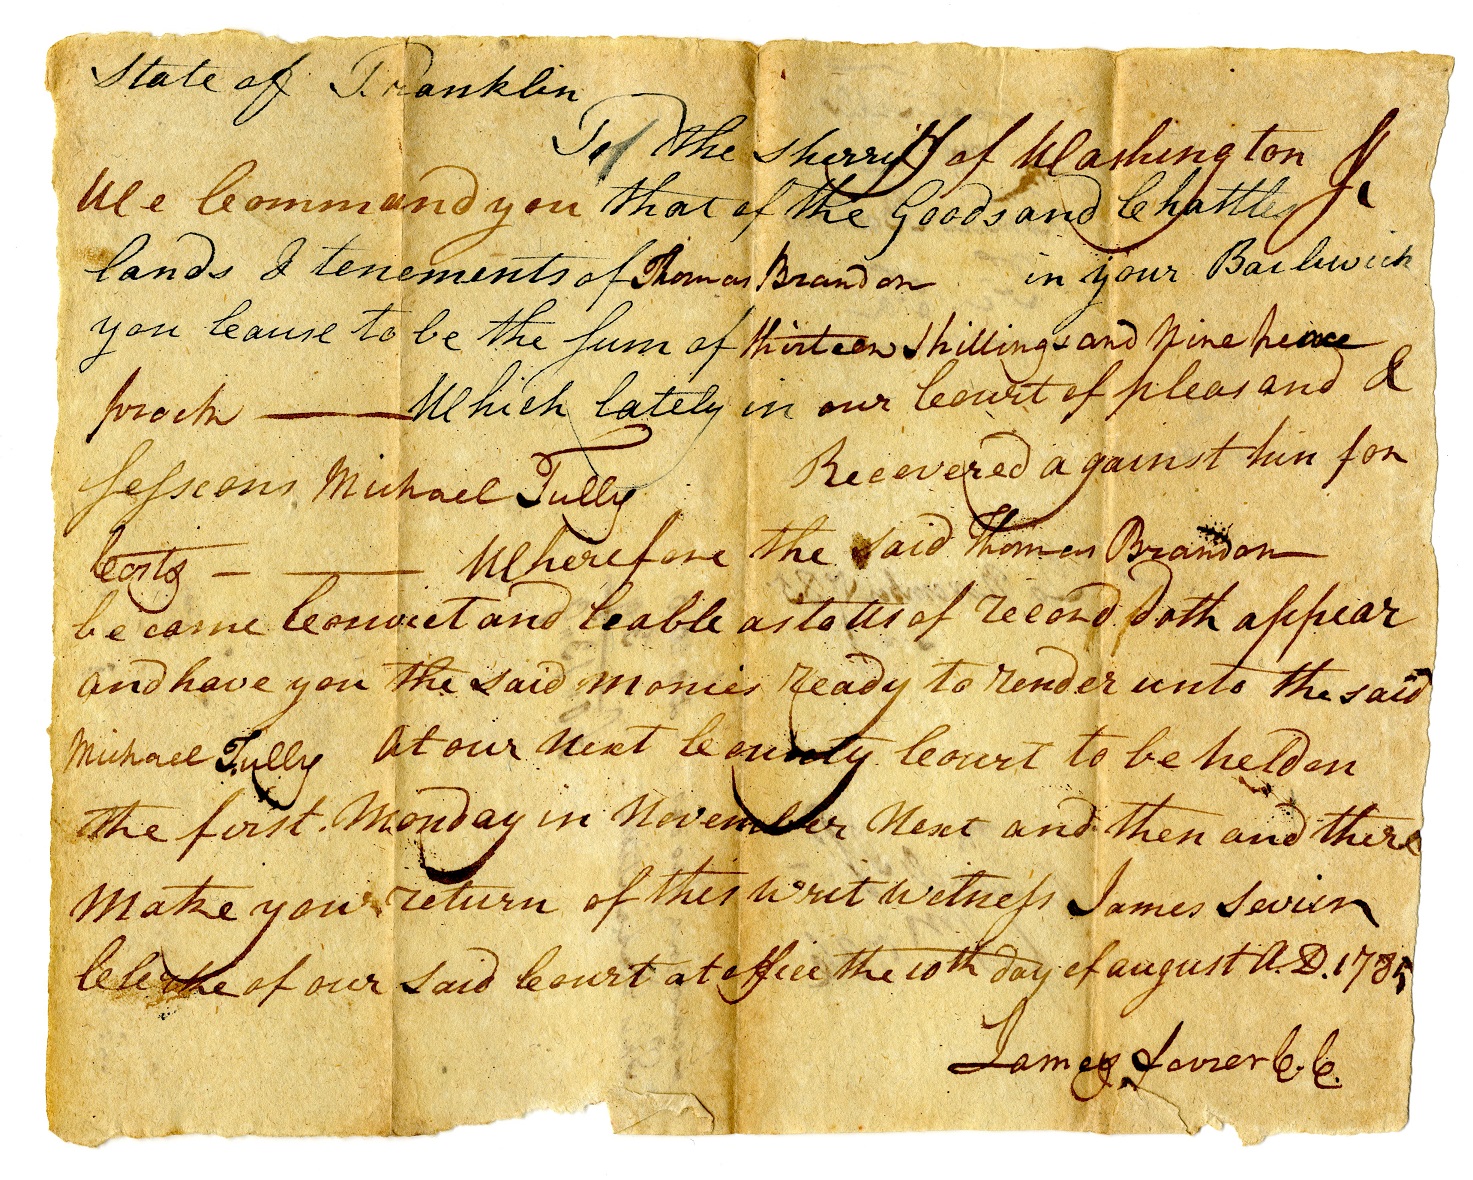 State of Franklin
To the Sherriff of Washington
We Command you that of the Goods and Chattles
lands & tenements of Thomas Brandon in your Bailiwick
you Cause to be the sum of thirteen shillings and Nine pence
Which lately in our Court of pleas and &
Sesseons Michael Tully Recovered against him for
Costs — Wherefore the said Thomas Brandon
became Convict and leable as to us of record doth appear
and have you the said monies ready to render unto the said
Michael Tully At our Next County Court to be held on
the first Monday in November Next and then and there
Make your return of this writ witness James Sevier
Clerke of our said Court at office the 10th day of august A.D. 1785
James Sevier C.C.